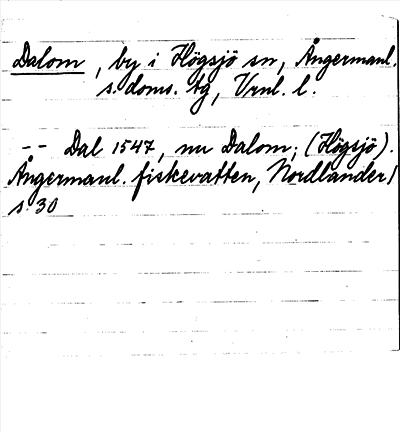 Dalom, by i Högsjö sn, Ångermanl.
s. doms. tg, Vrnl. l.
-- Dal 1547, nu Dalom; (Högsjö).
Ångermanl. fiskevatten, Nordlander,
s. 30